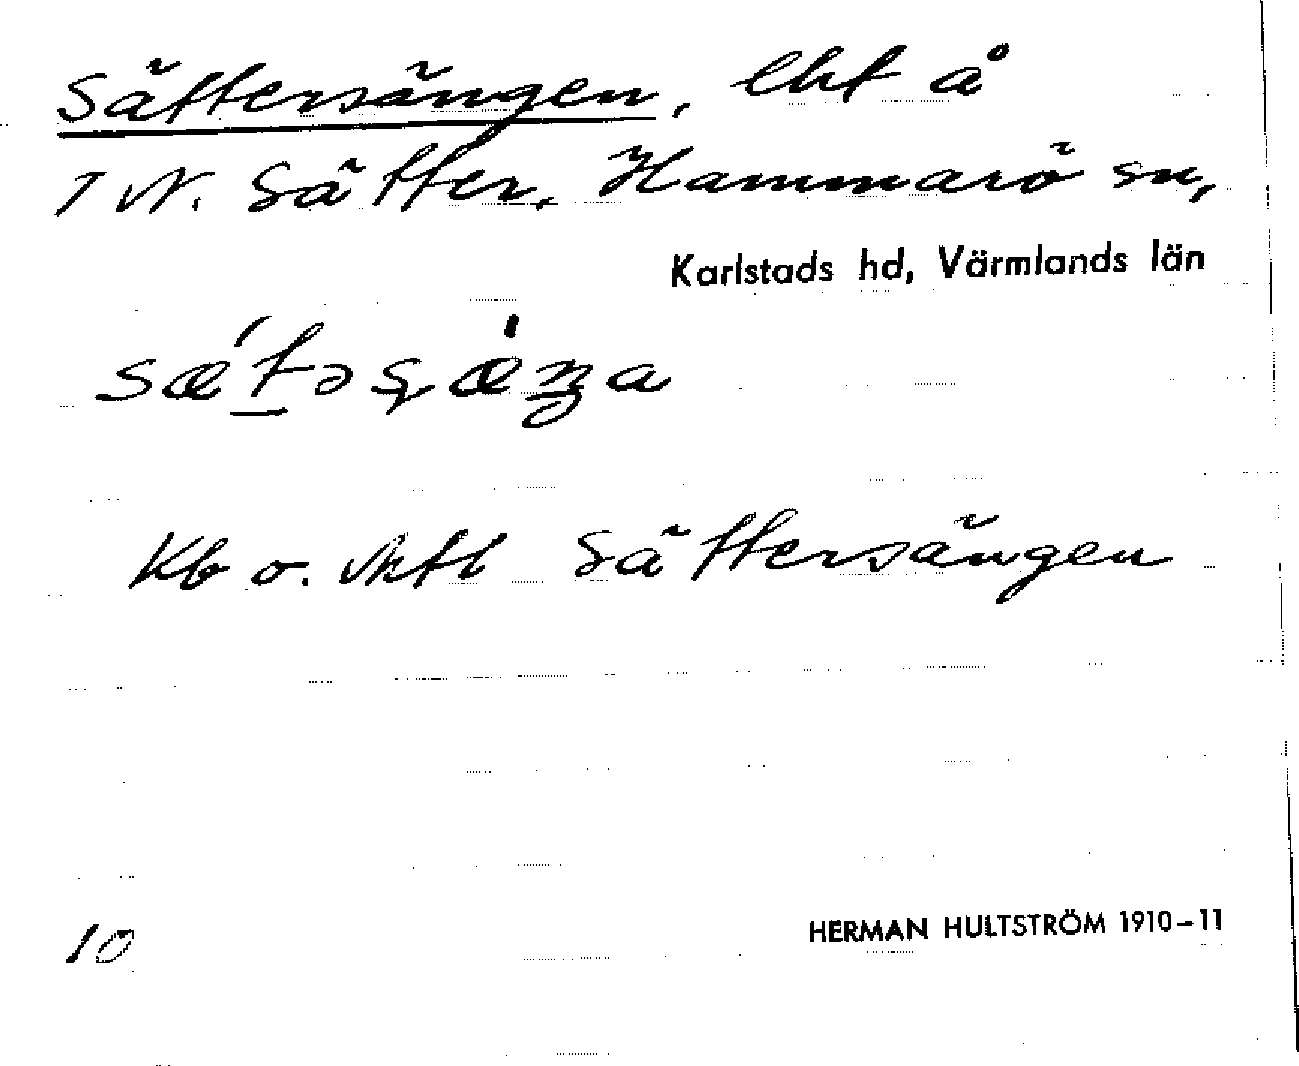 Sättersängen, lht å
1 N. Sätter, Hammarö sn,
Karlstads hd, Värmlands län
Kb o. Mtl Sättersängen
10
HERMAN HULTSTRÖM 1910-11